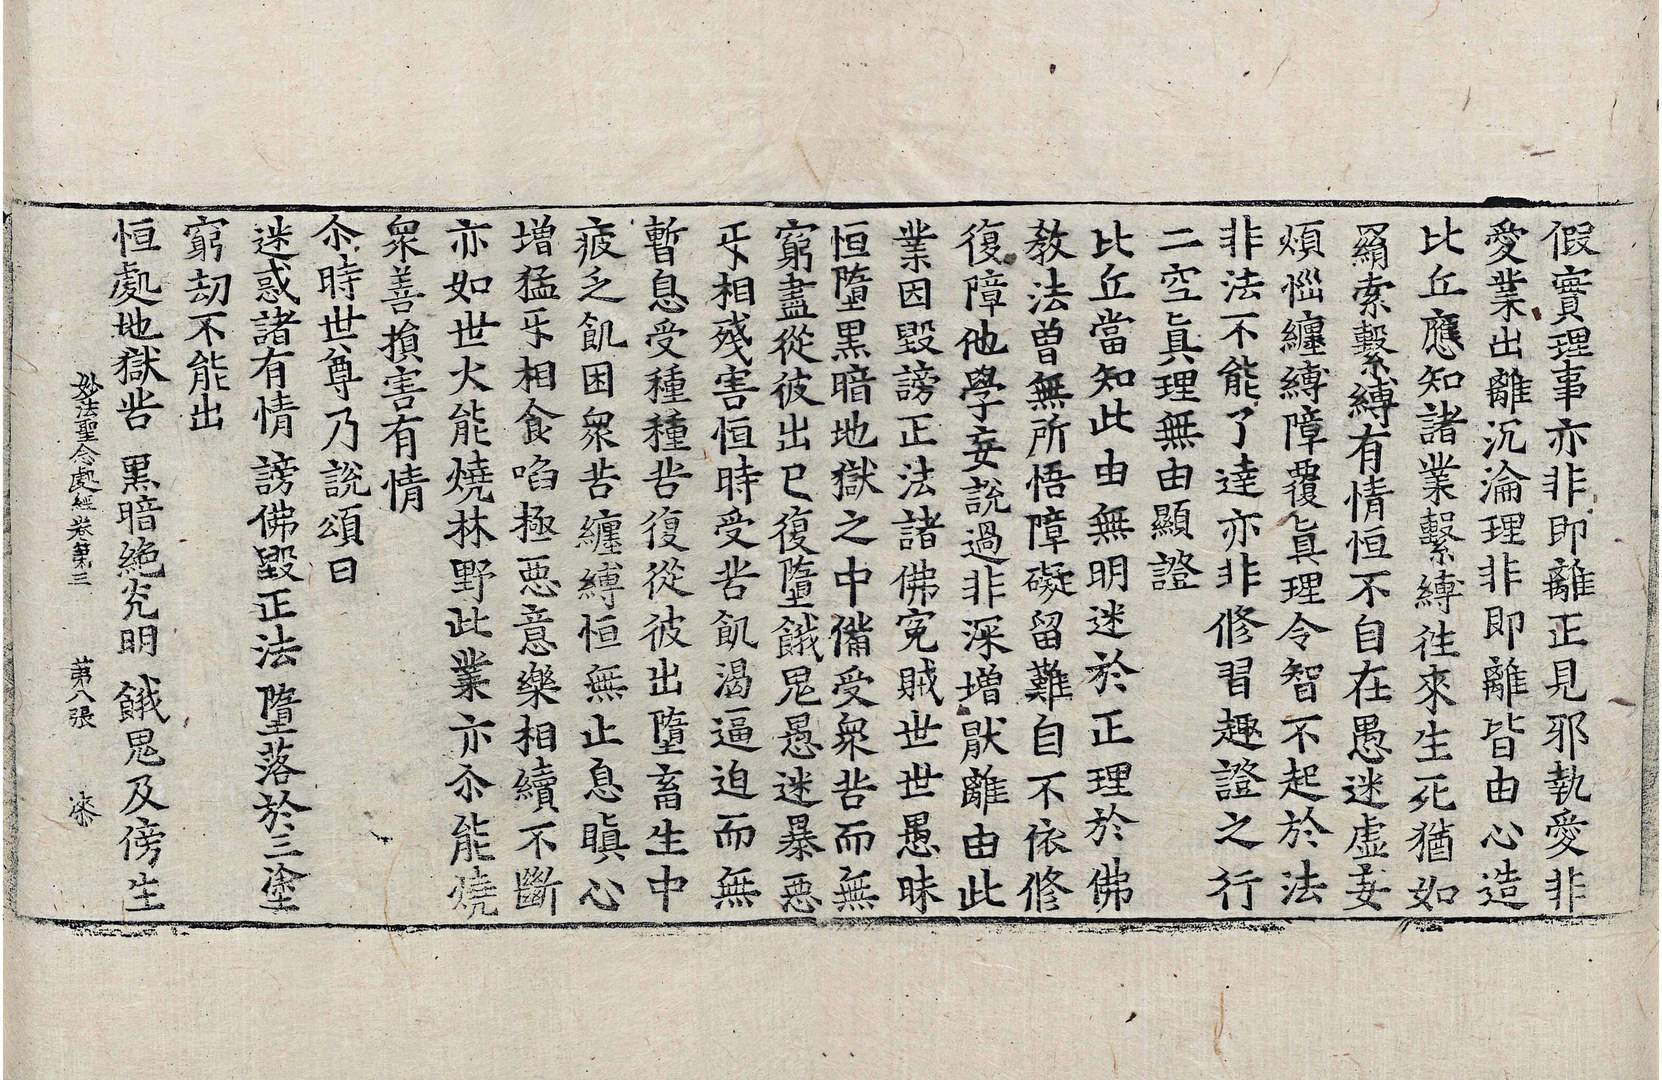 假實理事亦非即離正見邪執愛非
愛業出離沉淪理非即離皆由心造
比丘應知諸業繫縛往來生死猶如
羂索繫縛有情恒不自在愚迷虛妄
煩惱纏縛障覆真理令智不起於法
非法不能了達亦非修習趣證之行
二空真理無由顯證
比丘當知此由無明迷於正理於佛
教法曾無所悟障礙留難自不依修
復障他學妄說過非深增猒離由此
業因毀謗正法諸佛寃賊世世愚昧
恒墮黑暗地獄之中備受衆苦而無
窮盡從彼出已復墮餓鬼愚迷暴惡
㸦相殘害恒時受苦飢渴逼迫而無
暫息受種種苦復從彼出墮畜生中
疲乏飢困衆苦纏縛恒無止息瞋心
增猛㸦相食啗極惡意樂相續不斷
亦如世火能燒林野此業亦尒能燒
衆善損害有情
尒時世尊乃說頌曰
迷惑諸有情 謗佛毀正法 墮落於三塗
窮劫不能出
恒處地獄苦 黑暗絕光明 餓鬼及傍生
妙法聖念處經卷第三 第八張 柒